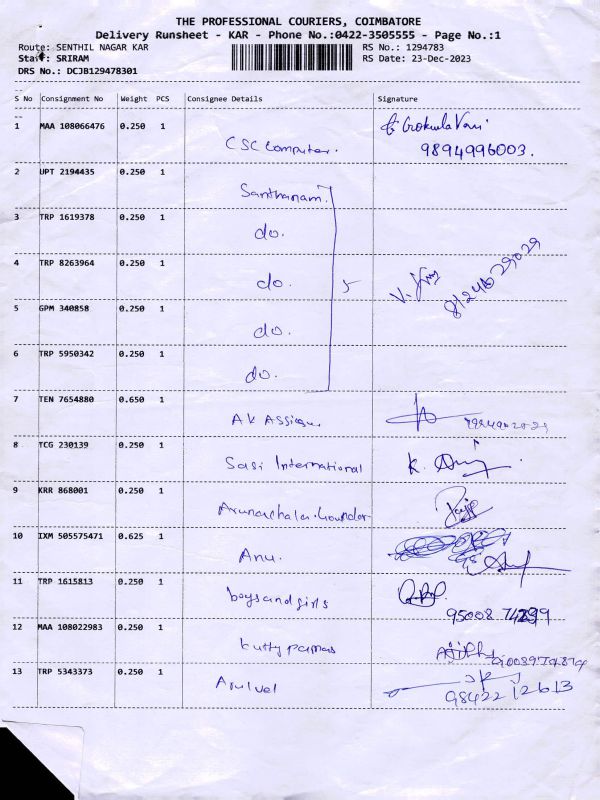 THE PROFESSIONAL COURIERS, COIMBATORE
Delivery Runsheet - KAR - Phone No.:0422-3505555 - Page No.:1
Route: SENTHIL NAGAR KAR RS No.: 1294783
Staff: SRIRAM RS Date: 23-Dec-2023
DRS No.: DCJB129478301
S No Consignment No Weight PCS Consignee Details Signature
1 MAA 108066476 0.250 1 CSC Computer. 9894996003.
2 UPT 2194435 0.250 1 Santhanam.
3 TRP 1619378 0.250 1 do.
4 TRP 8263964 0.250 1 do. 5
5 GPM 340858 0.250 1 do.
6 TRP 5950342 0.250 1 do.
7 TEN 7654880 0.650 1 AK
8 TCG 230139 0.250 1 Sasi International K.
9 KRR 868001 0.250 1
10 IXM 505575471 0.625 1 Anu.
11 TRP 1615813 0.250 1 boys and girls
12 MAA 108022983 0.250 1 kutty
13 TRP 5343373 0.250 1 Arulvel 98422 12613